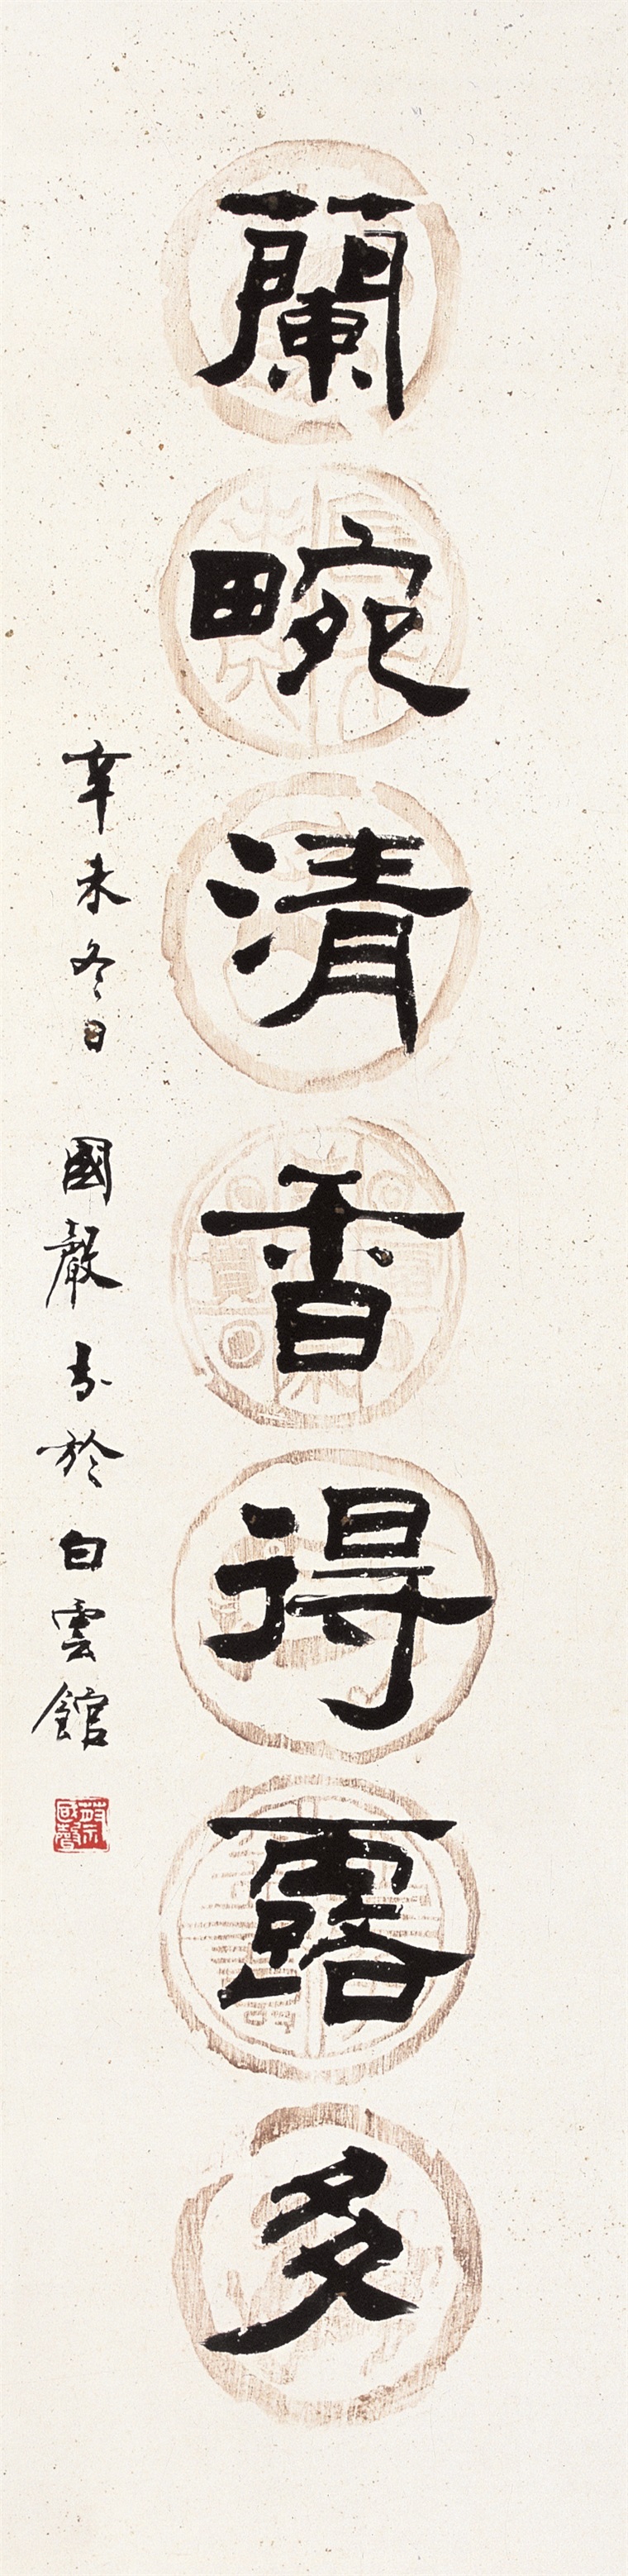 蘭畹清香得露多
辛未冬日 國聲書於白雲館